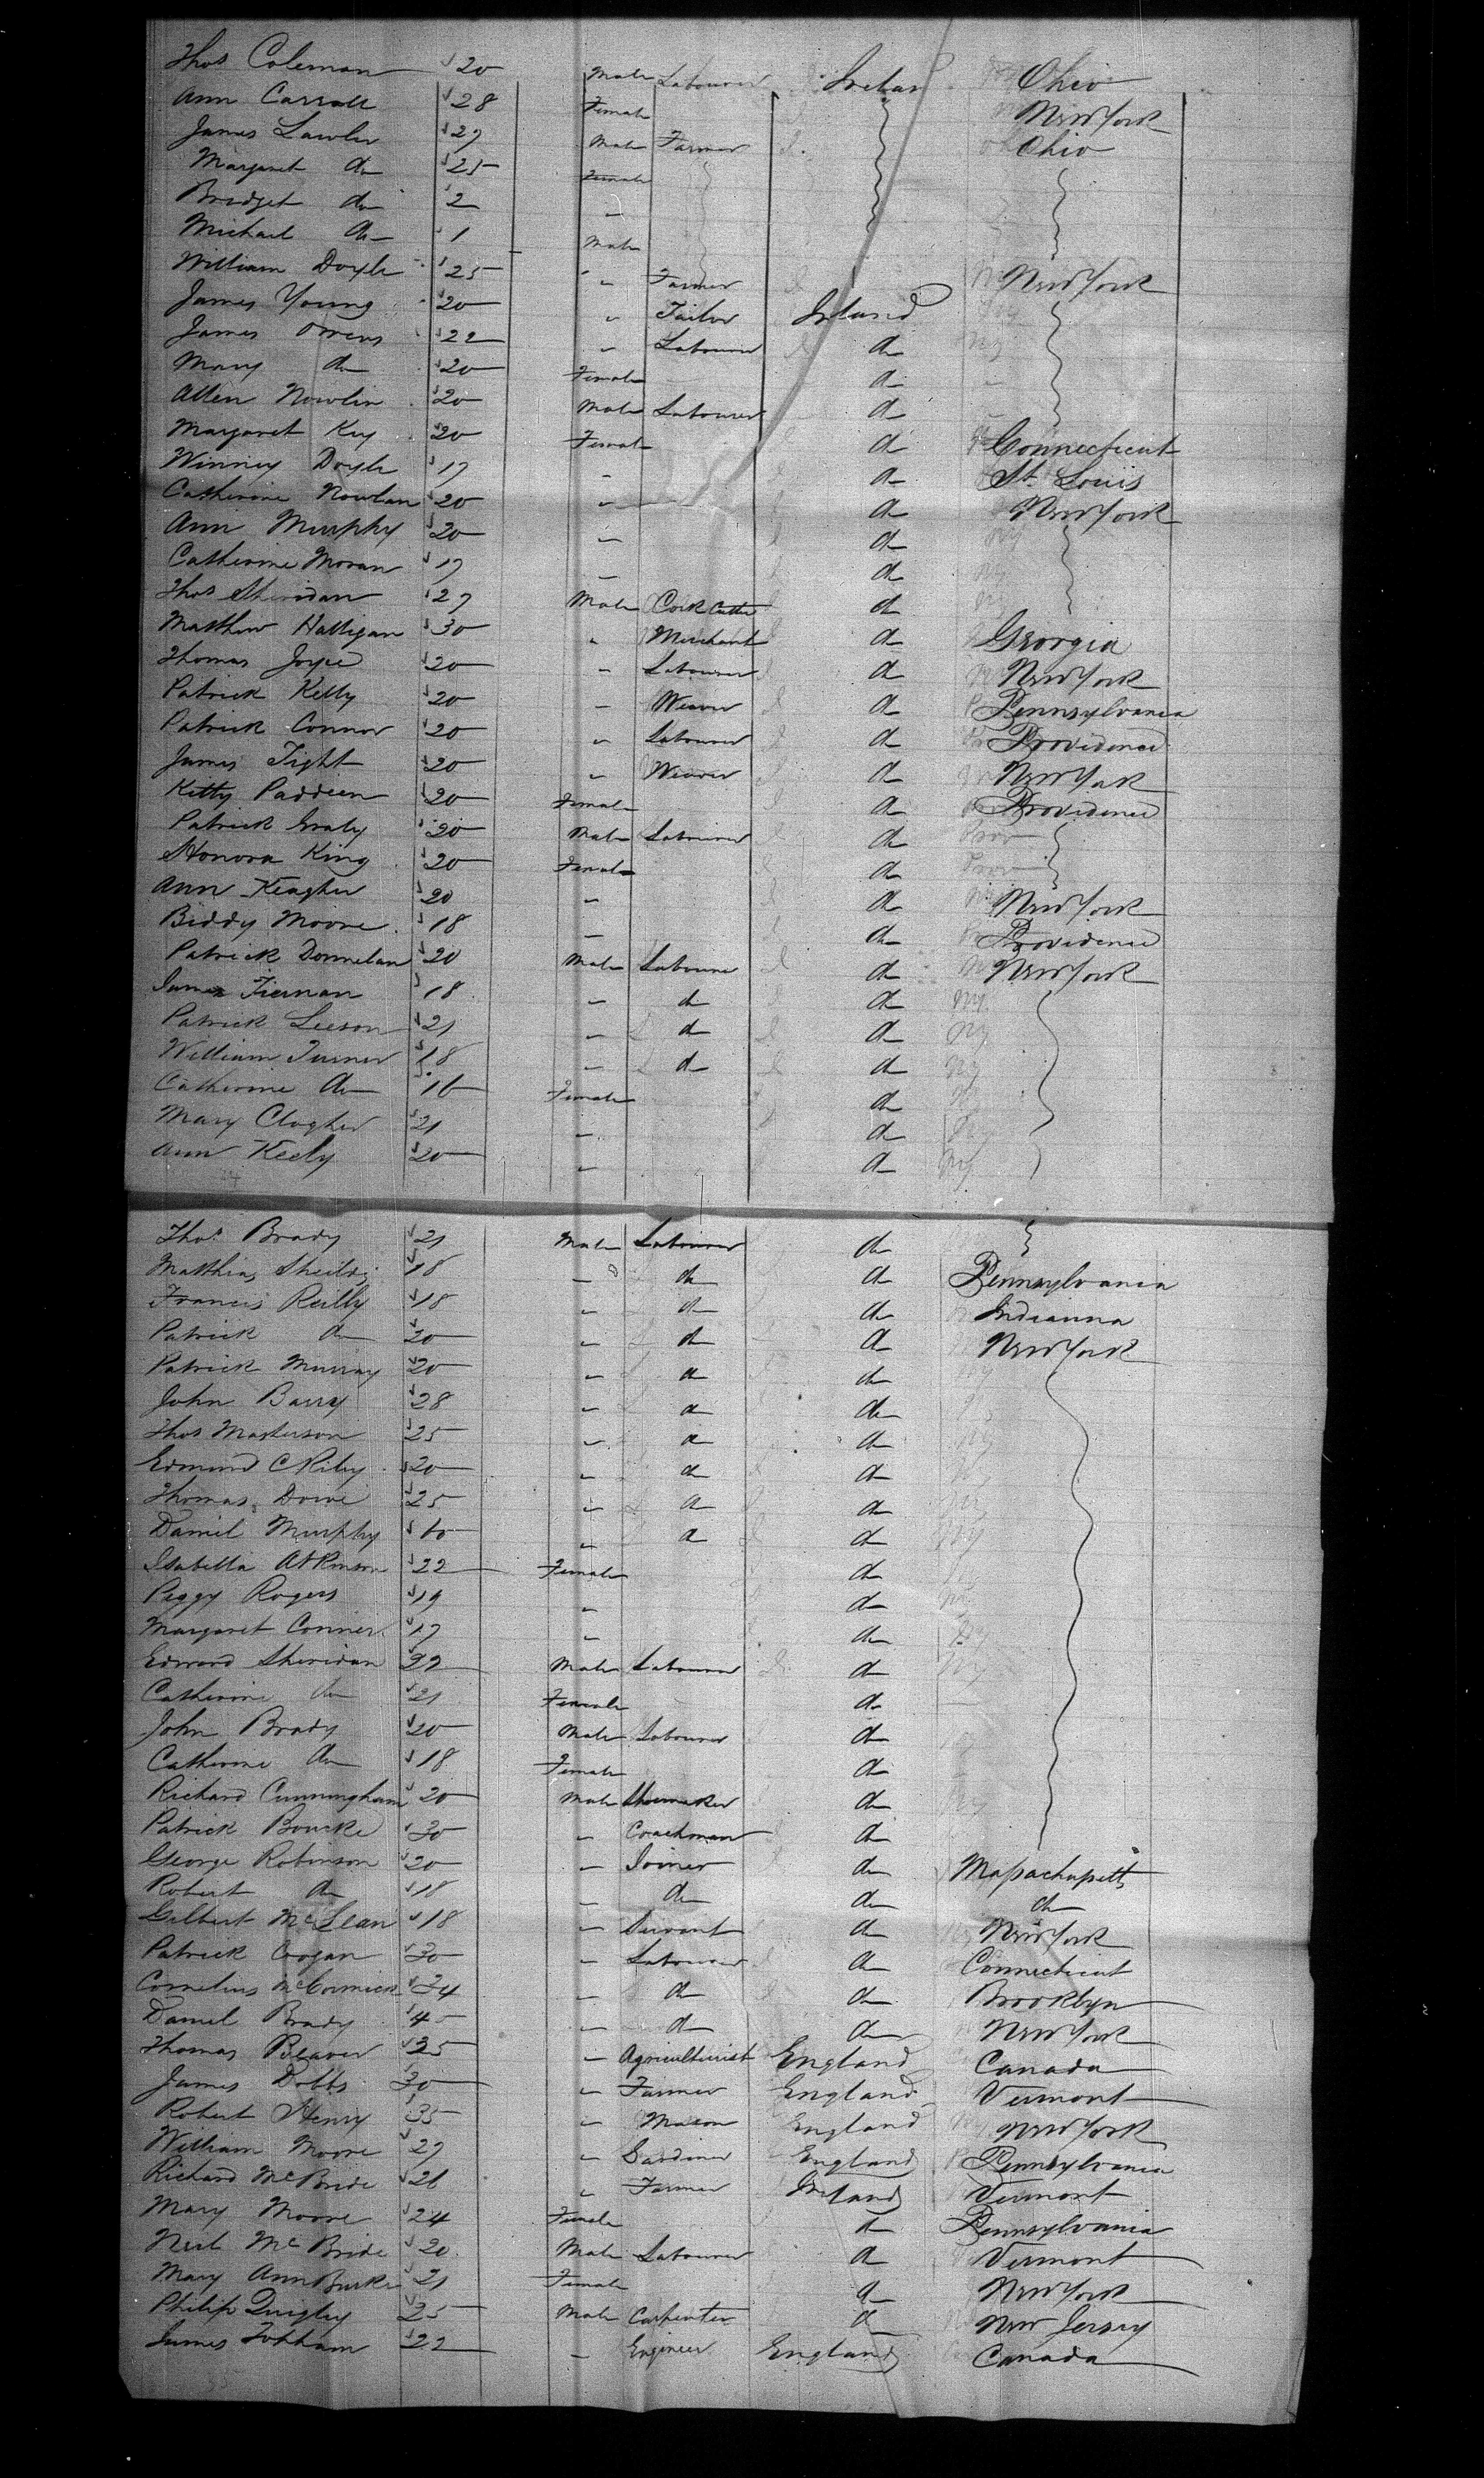 Thos Coleman 20 Male Labourer Irelan Ohio
Ann Carroll 28 Female New York
James Lawler 27 Male Farmer Ohio
Margaret do 25 Female
Bridget do 2 "
Michael do 1 Male
William Doyle 25 " Farmer New York
James Young 20 " Tailor Ireland
James Owens 22 " Labourer do
Mary do 20 Female do
Allen Nowlin 20 Male Labourer do
Margaret Key 20 Female do Connecticut
Winney Doyle 17 " do St. Louis
Catherine Nowlan 20 " do New York
Ann Murphy 20 " do
Catherine Moran 17 " do
Thos Sheridan 27 Male Cork Cutter do
Matthew Halligan 30 " Merchant do Georgia
Thomas Joyce 20 " Labourer do New York
Patrick Kelly 20 " Weaver do Pennsylvania
Patrick Connor 20 " Labourer do Providence
James Tight 20 " Weaver do New York
Kitty Paddien 20 Female do Providence
Patrick Graly 20 Male Labourer do
Honora King 20 Female do
Ann Keagher 20 " do New York
Biddy Moore 18 " do Providence
Patrick Donnelan 20 Male Laboure do New York
James Tiernan 18 " do do
Patrick Leeson 21 " do do
William Turner 18 " do do
Catherine do 16 Female do
Mary Clogher 21 " do
Ann Keely 20 " do
Thos. Brady 21 Male Labourer do
Matthias Sheilds 18 " do do Pennsylvania
Francis Reilly 18 " do do Indianna
Patrick do 20 " do do New York
Patrick Murray 20 " do do
John Barry 28 " do do
Thos Masterson 25 " do do
Edmund C Riley 20 " do do
Thomas Dowe 25 " do do
Daniel Murphy " do do
Isabella Atkinson 22 Female do
Peggy Rogers 19 " do
Margaret Conner 17 " do
Edward Sheridan 22 Male Labourer do
Catherine do 21 Female do
John Brady 20 Male Labourer do
Catherine do 18 Female do
Richard Cunningham 20 Male Shoemaker do
Patrick Bourke 30 " Coachman do
George Robinson 20 " Joiner do Massachusetts
Robert do 18 " do do do
Gilbert McLean 18 " Servant do New York
Patrick Cogan 30 " Labourer do Connecticut
Cornelius McCormick 34 " do do Brooklyn
Daniel Brady 45 " do do New York
Thomas Beaver 25 " Agriculturist England Canada
James Dobbs 30 " Farmer England Vermont
Robert Henry 35 " Mason England New York
William Moore 27 " Gardiner England Pennsylvania
Richard McBride 26 " Farmer Ireland Vermont
Mary Moore 24 Female do Pennsylvania
Neil McBride 20 Male Labourer do Vermont
Mary Ann Burke 21 Female do New York
Philip Quigley 25 Male Carpenter do New Jersey
James Topham 22 " Engineer England Canada